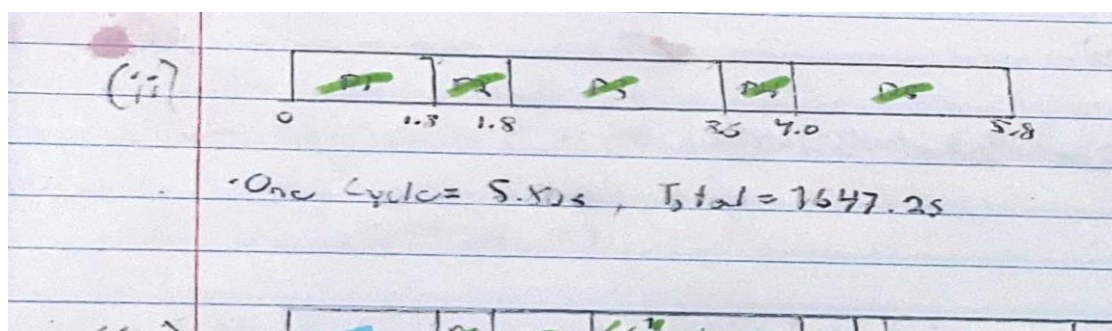 (ii)
P1 P2 P3 P4 P5
0 1.3 1.8 3.5 4.0 5.8
·One Cycle= 5.80s, Total = 1647.2s